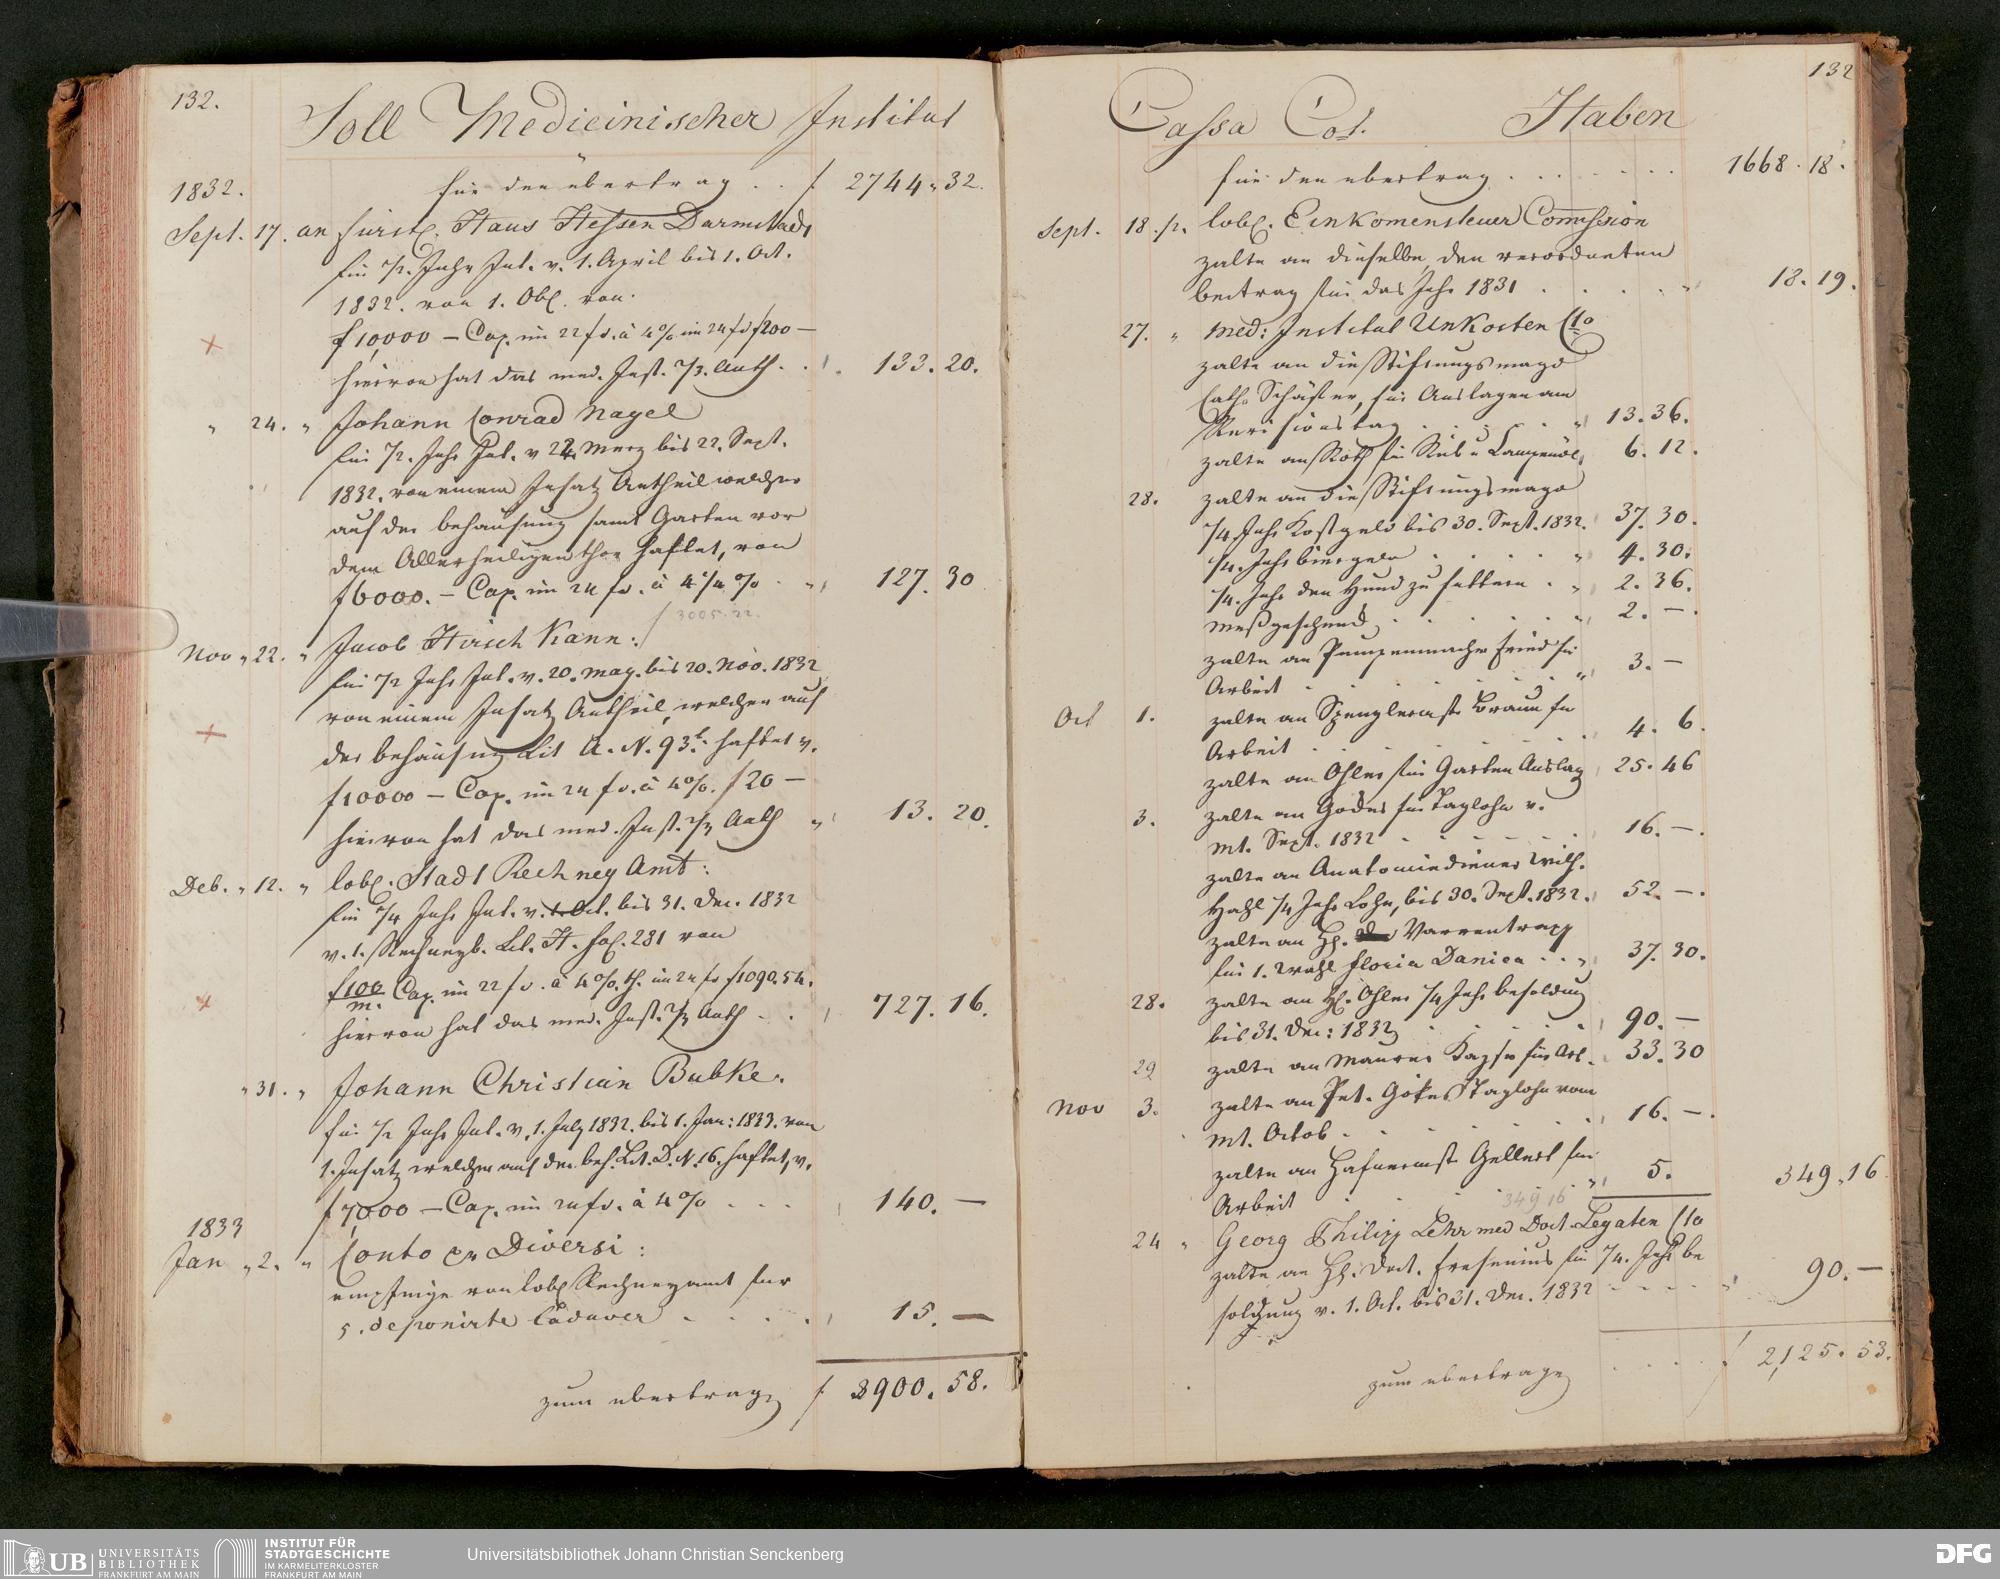 132.
Soll Medicinischer Institut
1832.
für den übertrag . . f 2744 „ 32.
Sept. 17. an fürstl. Haus Hessen Darmstadt,
für ½. Jahr Int. v. 1. April bis 1. Oct.
1832. von 1. Obl. von.
f 10,000 — Cap. im 22 f v. à 4% im 24 f v f 200 —
hievon hat das med. Inst. ⅔. Anth. . . 133. 20.
„ 24. „ Johann Conrad Nagel
für ½. Jahr Int. v 22. Merz bis 22. Sept.
1832. von einem Insatz Antheil welcher
auf der behausung samt Garten vor
dem Allerheiligen thor haftet, von
f 6000. — Cap. im 24 f v. à 4 ¼ % . „ 127. 30
f 3005. 22.
Nov „ 22. „ Jacob Hirsch Kann:
für ½ Jahr Int. v. 20. May. bis 20. Nov. 1832
von einem Insatz Antheil, welcher auf
der behausung Lit A. N. 93 b. haftet v.
f 10000 — Cap. im 24 f v. à 4%. f 20 —
hievon hat das med. Inst. ⅔ Anth „ 13. 20.
Deb. „ 12. „ lobl. Stadt Rechney Amt:
für ¼ Jahr Int. v. 1. Oct. bis 31. Dec. 1832
v. 1. Rechneyb. Lit. H. fol. 281 von
f 100/m. Cap. im 22 f v. à 4%. im 24 f v f 1090. 54.
hievon hat das med. Inst. ⅔ Anth . . 727. 16.
„ 31. „ Johann Christian Bubke.
für ½ Jahr Int. v. 1. July 1832. bis 1. Jan: 1833. von
1. Insatz welcher auf der beh. Lit. D. N. 16. haftet, v.
f 7000 — Cap. im 24 f v. à 4% . . . 140. —
1833
Jan „ 2. „ Conto pr Diversi:
empfinge von lobl Rechneyamt für
5. deponirte Cadaver . . . . 15. —
zum übertrag f 3900. 58.
132
Cassa Cot. Haben
für den übertrag . . . . . . 1668. 18.
Sept. 18. p. lobl. Einkomensteuer Commission
zalte an dieselbe, den verordneten
beitrag für das Jahr 1831 . . . . . „ 18. 19.
27. „ Med: Institut Unkosten Cto
zalte an die Stiftungsmagd
Cath. Schäfer, für Auslagen am
Revisionstag . . . . „ 13. 36.
zalte an Roth für Rüb u Lampenöl, 6. 12.
28. zalte an die Stiftungsmagd
¼ Jahr Kostgeld bis 30. Sept. 1832. 37. 30.
¼. Jahr biergeld . . . . „ 4. 30.
¼. Jahr den Hund zu futtern . „ 2. 36.
Meßgeschend . . . . . „ 2. — .
zalte an Pumpenmacher Fried für
Arbeit . . . . . . „ 3. —
Oct 1. zalte an Spenglermstr Braun für
Arbeit . . . . . . 4. 6.
zalte an Ohler für Garten Auslag 25. 46
3. zalte an Godes für Taglohn v.
Mt. Sept. 1832 . . . . . . 16. — .
zalte an Anatomiediener Wilh.
Hahl ¼ Jahr Lohn, bis 30. Sept. 1832. 52. — .
zalte an Hh. Varrentrapp
für 1. Wahl Floria Danica . . „ 37. 30.
28. zalte an H. Ohler ¼ Jahr besoldung
bis 31. Dec: 1832 . . . . 90. —
29 zalte an Maurer Kayser für Arb. . 33. 30
Nov 3. zalte an Pet. Götes Taglohn vom
Mt. Octob . . . . . . 16. — .
zalte an Hafnermstr Gellert für
Arbeit . . . . . „ 5. 349. 16
349 16
24 „ Georg Philipp Lehr med Doct. Legaten Cto
zalte an Hh. Doct. Fresenius für ¼. Jahr be
soldung v. 1. Oct. bis 31. Dec. 1832 . . . . „ 90. —
zum übertrage . . . . f 2,125. 53.
UB UNIVERSITÄTS
BIBLIOTHEK
FRANKFURT AM MAIN
INSTITUT FÜR
STADTGESCHICHTE
IM KARMELITERKLOSTER
FRANKFURT AM MAIN
Universitätsbibliothek Johann Christian Senckenberg
DFG